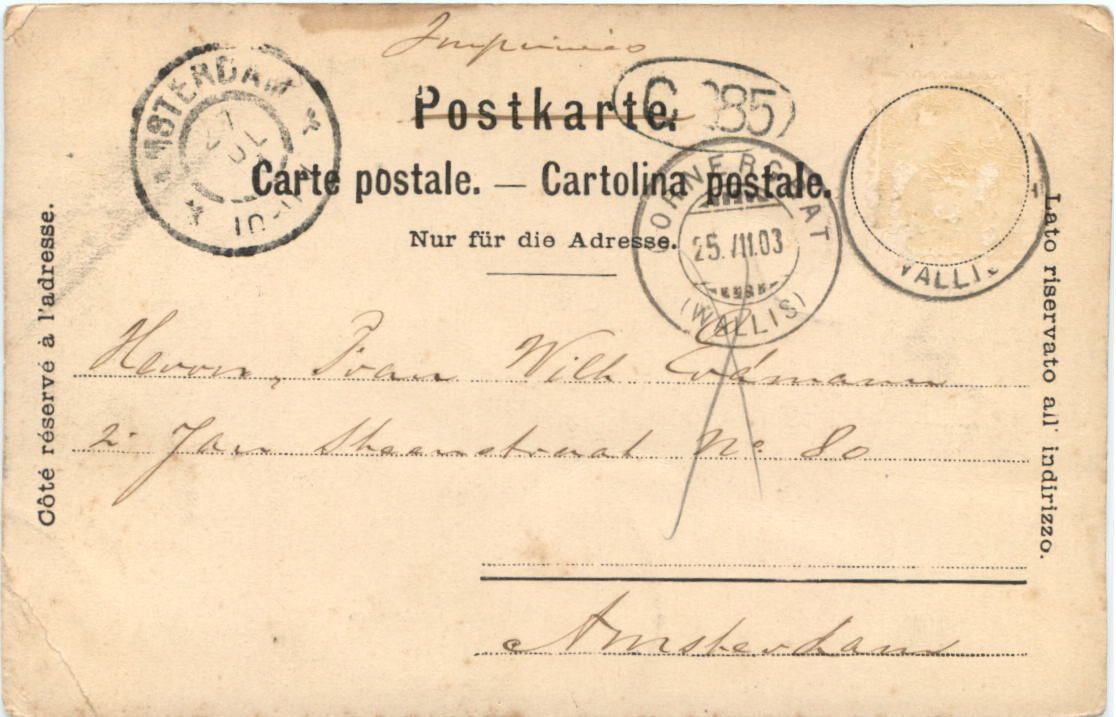 Imprimés
Postkarte.
Carte postale. — Cartolina postale.
Nur für die Adresse.
Côté réservé à l'adresse.
Lato riservato all' indirizzo.
AMSTERDAM
10-11
385
GORNERGRAT
25.VII.03
(WALLIS)
WALLIS
Herrn, Frau Wilh Erdmann
2e Jan Steenstraat No. 80
Amsterdam